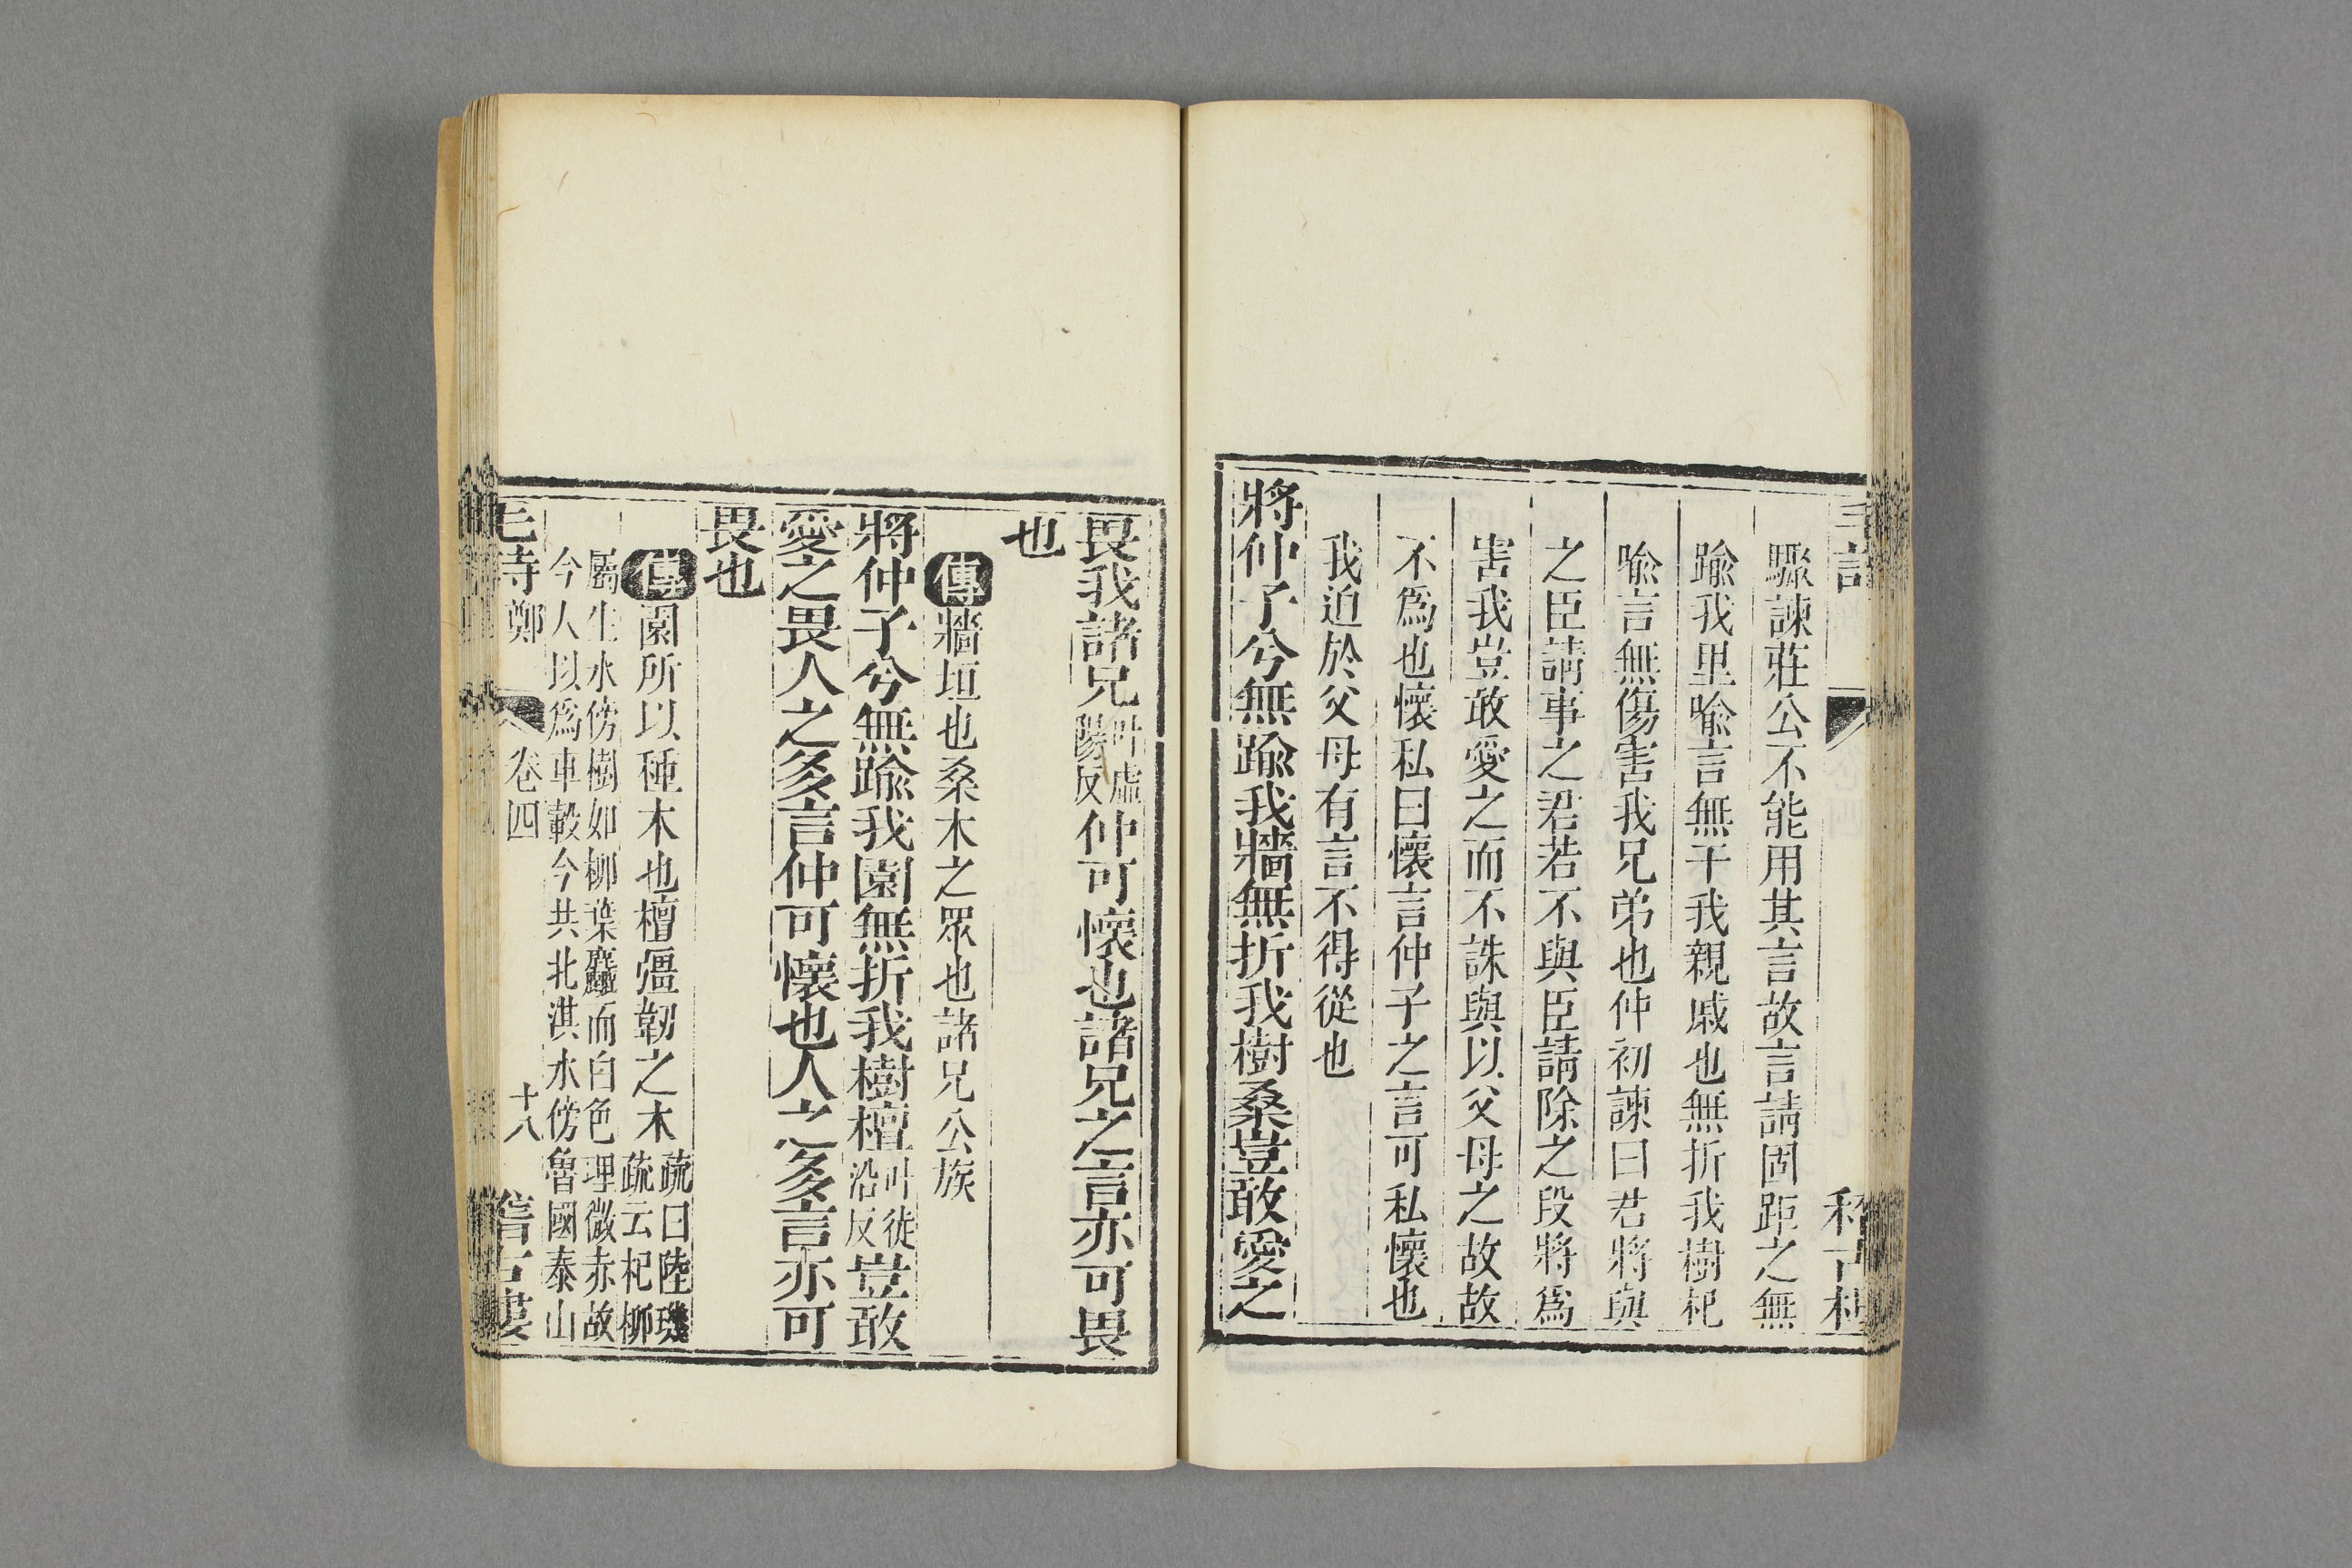 驟諫莊公不能用其言故言請固距之無
踰我里喻言無干我親戚也無折我樹杞
喻言無傷害我兄弟也仲初諫曰君將與
之臣請事之君若不與臣請除之段將爲
害我豈敢愛之而不誅與以父母之故故
不爲也懷私曰懷言仲子之言可私懷也
我迫於父母有言不得從也
將仲子兮無踰我牆無折我樹桑豈敢愛之
畏我諸兄叶虛陽反仲可懷也諸兄之言亦可畏
也
傳牆垣也桑木之眾也諸兄公族
將仲子兮無踰我園無折我樹檀叶徒沿反豈敢
愛之畏人之多言仲可懷也人之多言亦可
畏也
傳園所以種木也檀彊韌之木疏曰陸璣疏云杞柳
屬生水傍樹如柳葉麤而白色理微赤故
今人以爲車轂今共北淇水傍魯國泰山
毛詩鄭 卷四 十八